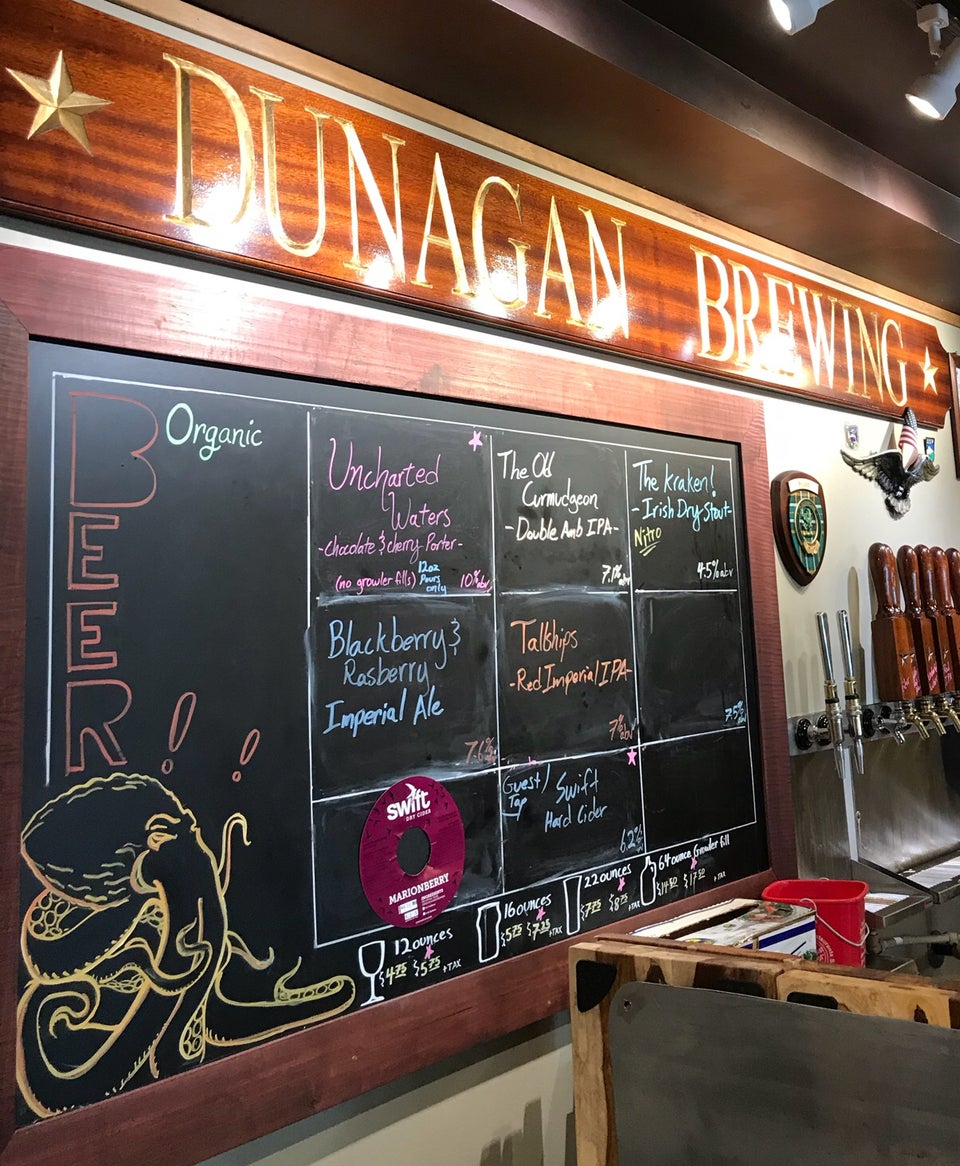 DUNAGAN BREWING
BEER!!
Organic
Uncharted
Waters
-Chocolate & Cherry Porter-
(no growler fills)
12oz
Pours
only
10% abv
The Old
Curmudgeon
-Double Amb IPA-
7.1% abv
The Kraken!
-Irish Dry Stout-
Nitro
4.5% abv
Blackberry &
Rasberry
Imperial Ale
7.6% abv
Tallships
-Red Imperial IPA-
7% abv
7.5% abv
swift
DRY CIDER
MARIONBERRY
Guest/
Tap
Swift
Hard Cider
6.2%
12 ounces
$4.75 $5.75 +TAX
16 ounces
$5.75 $7.25 +TAX
22 ounces
$7.75 $8.75 +TAX
64 ounce Growler fill
$14.50 $17.50 +TAX